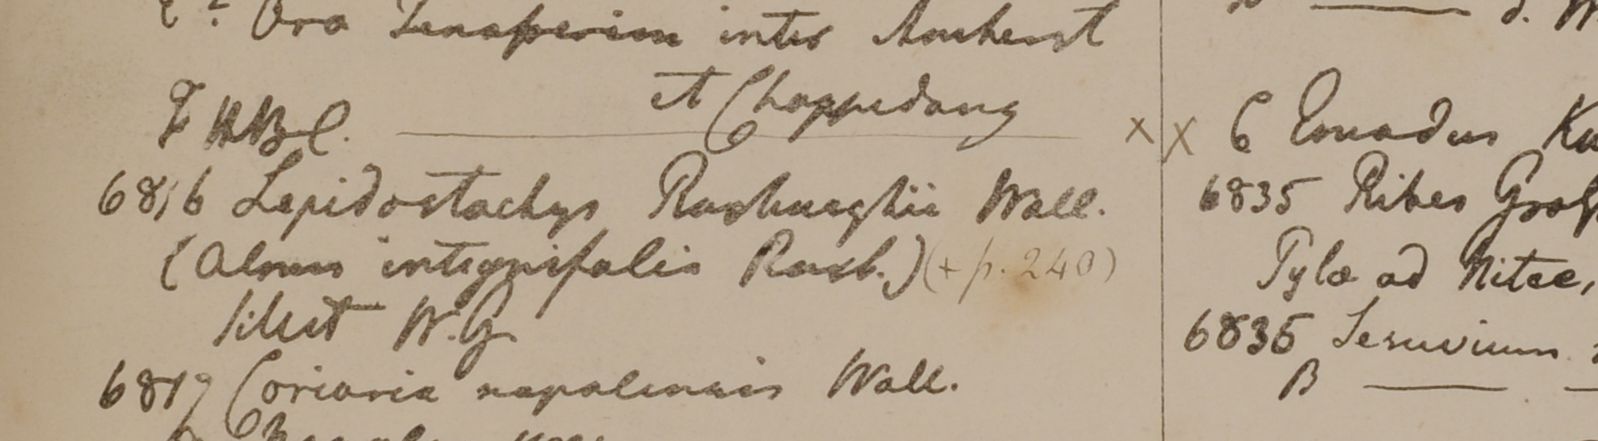 Ora Tenasserim inter Amherst
et Chappedang
F HBC.
6816 Lepidostachys Roxburghii Wall.
(Alnus integrifolia Roxb.) (+ p. 240)
Silhet W.G.
6817 Coriaria nepalensis Wall.
x x 6 Emodus
6835 Ribes
Pyla ad Nitee,
6836 Sesuvium
B